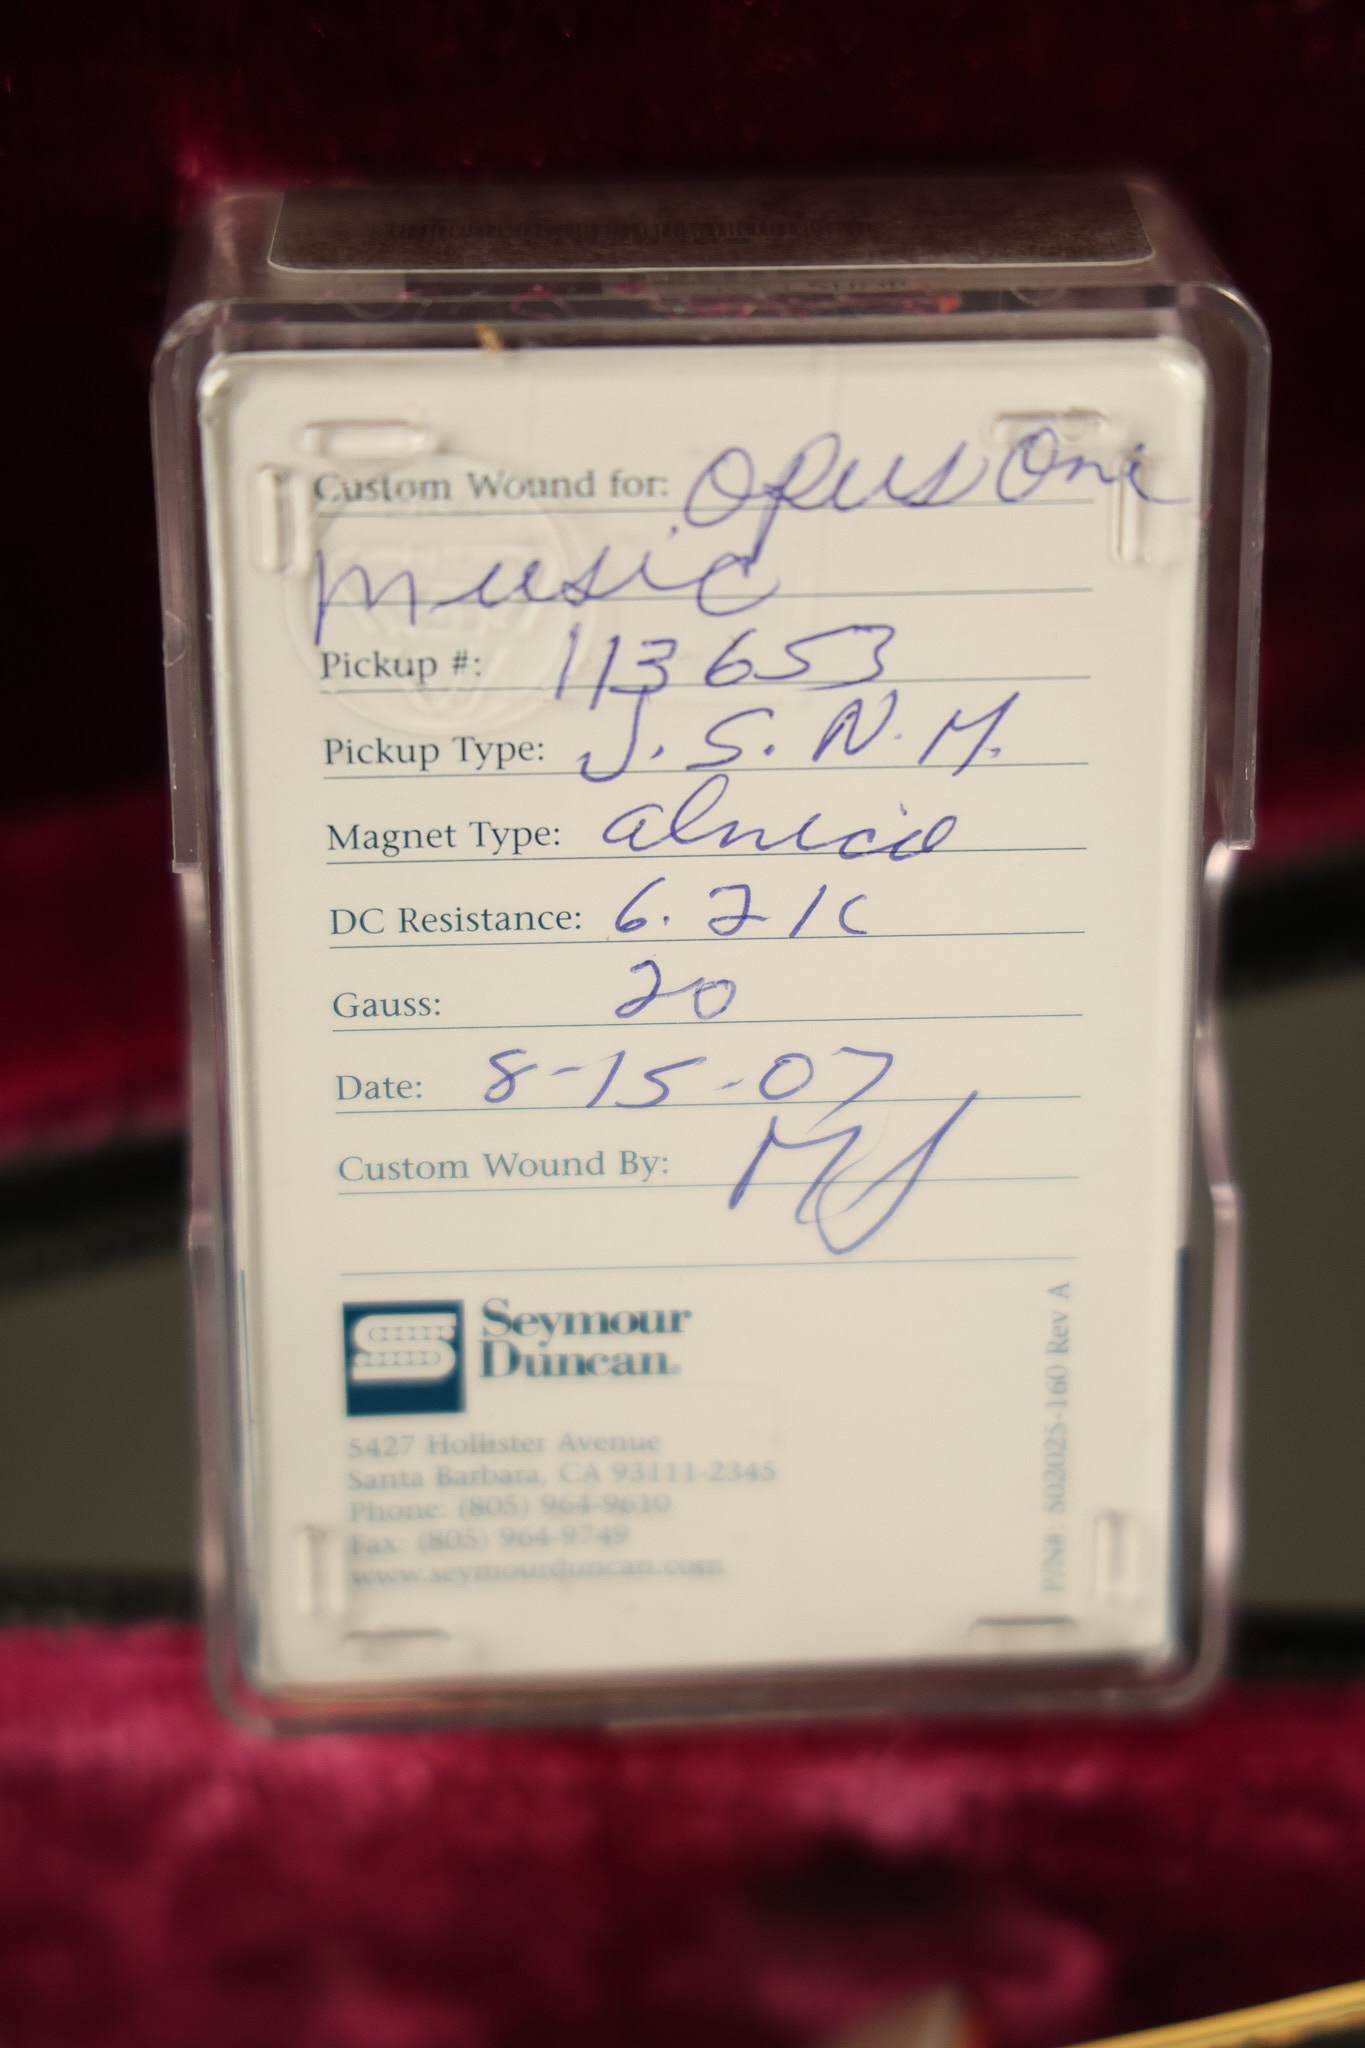 Custom Wound for: Opus One
music
Pickup #: 113653
Pickup Type: J.S.N.M.
Magnet Type: alnico
DC Resistance: 6.21K
Gauss: 20
Date: 8-15-07
Custom Wound By: MJ
Seymour
Duncan®
5427 Hollister Avenue
Santa Barbara, CA 93111-2345
Phone: (805) 964-9610
Fax: (805) 964-9749
www.seymourduncan.com
P/N#: S02025-160 Rev A